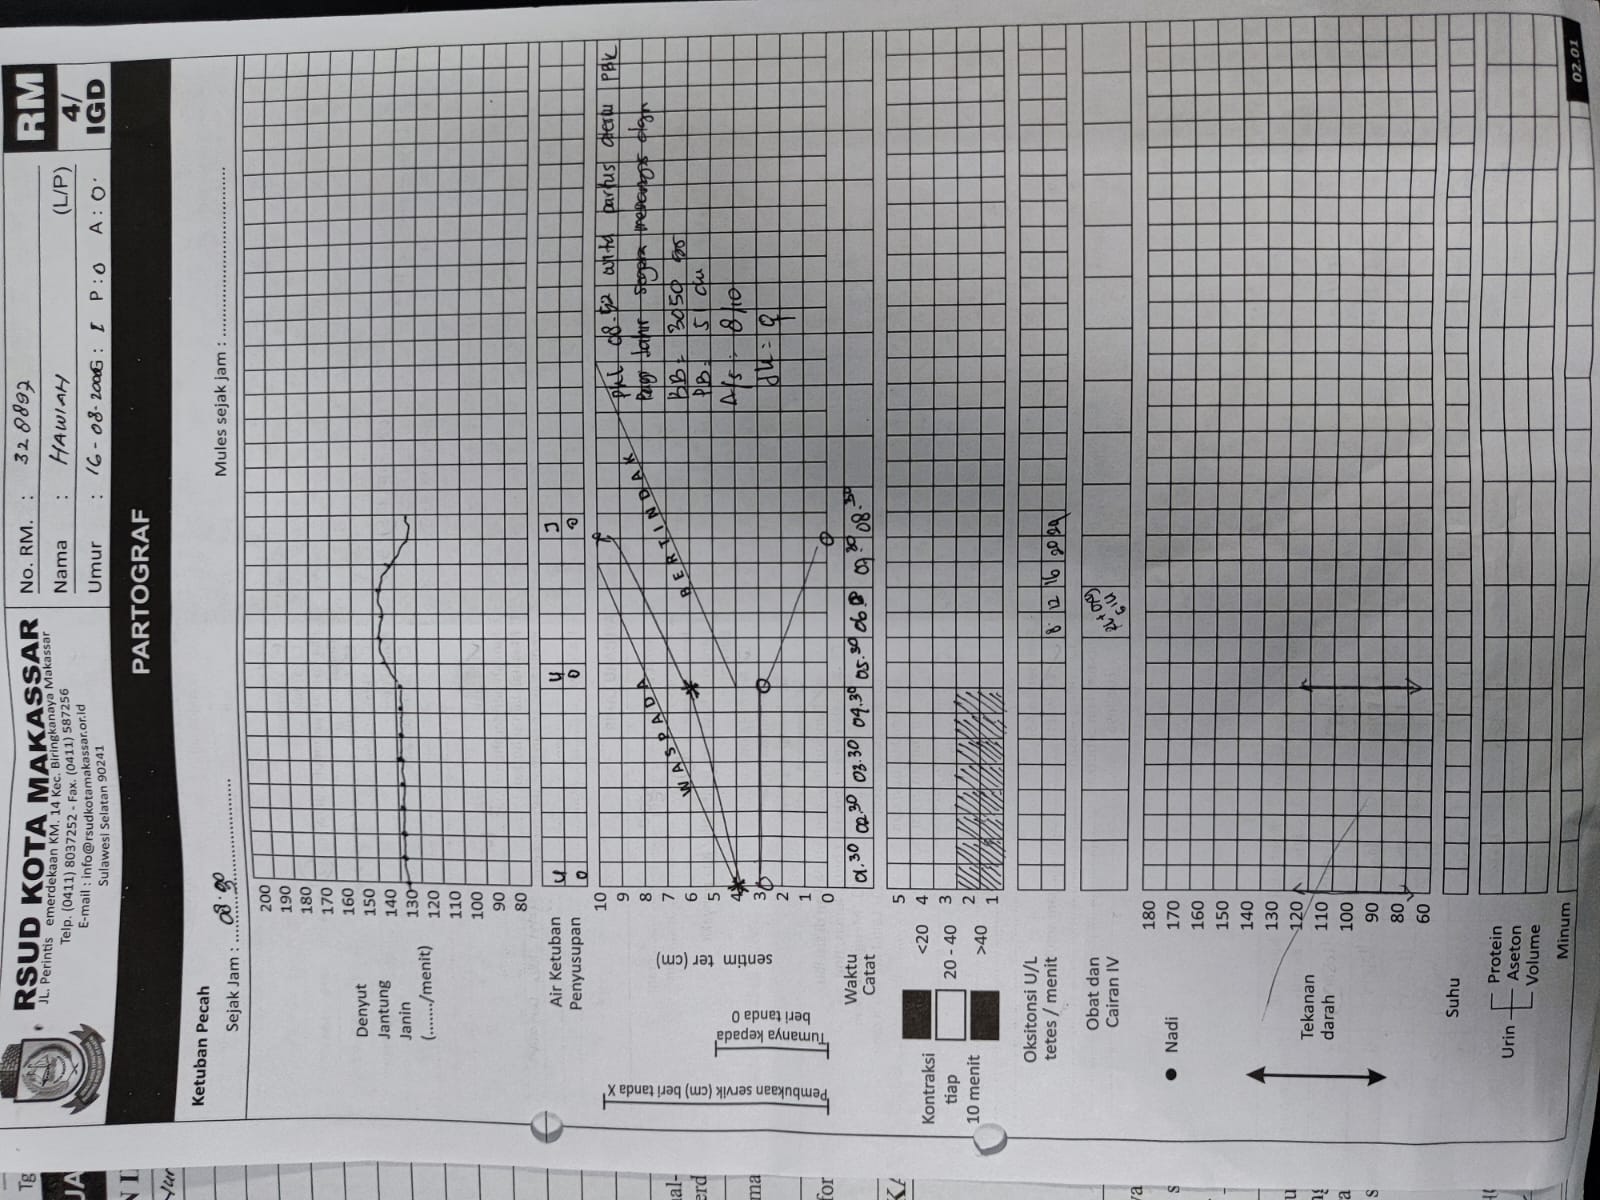 RSUD KOTA MAKASSAR
JL. Perintis emerdekaan KM. 14 Kec. Biringkanaya Makassar
Telp. (0411) 8037252 - Fax. (0411) 587256
E-mail : info@rsudkotamakassar.or.id
Sulawesi Selatan 90241
No. RM. : 328892
Nama : HAWIAH (L/P)
Umur : 16-08-2006 : I P : 0 A : 0
RM
4/
IGD
PARTOGRAF
Ketuban Pecah
Sejak Jam :
Mules sejak jam :
Denyut
Jantung
Janin
(......../menit)
200
190
180
170
160
150
140
130
120
110
100
90
80
Air Ketuban
Penyusupan
U U J
0 0 0
Pembukaan servik (cm) beri tanda X
Turnanya kepada
beri tanda 0
sentim ter (cm)
10
9
8
7
6
5
4
3
2
1
0
WASPADA
BERTINDAK
BB = 3050 gr
PB = 51 cm
A/S = 8/10
JK = ♀
Waktu
Catat
01.30 02.30 03.30 04.30 05.30
Kontraksi
tiap
10 menit
<20
20 - 40
>40
5
4
3
2
1
Oksitonsi U/L
tetes / menit
8 12 16 20 24
Obat dan
Cairan IV
Nadi
Tekanan
darah
180
170
160
150
140
130
120
110
100
90
80
60
Suhu
Urin
Protein
Aseton
Volume
Minum
02.01